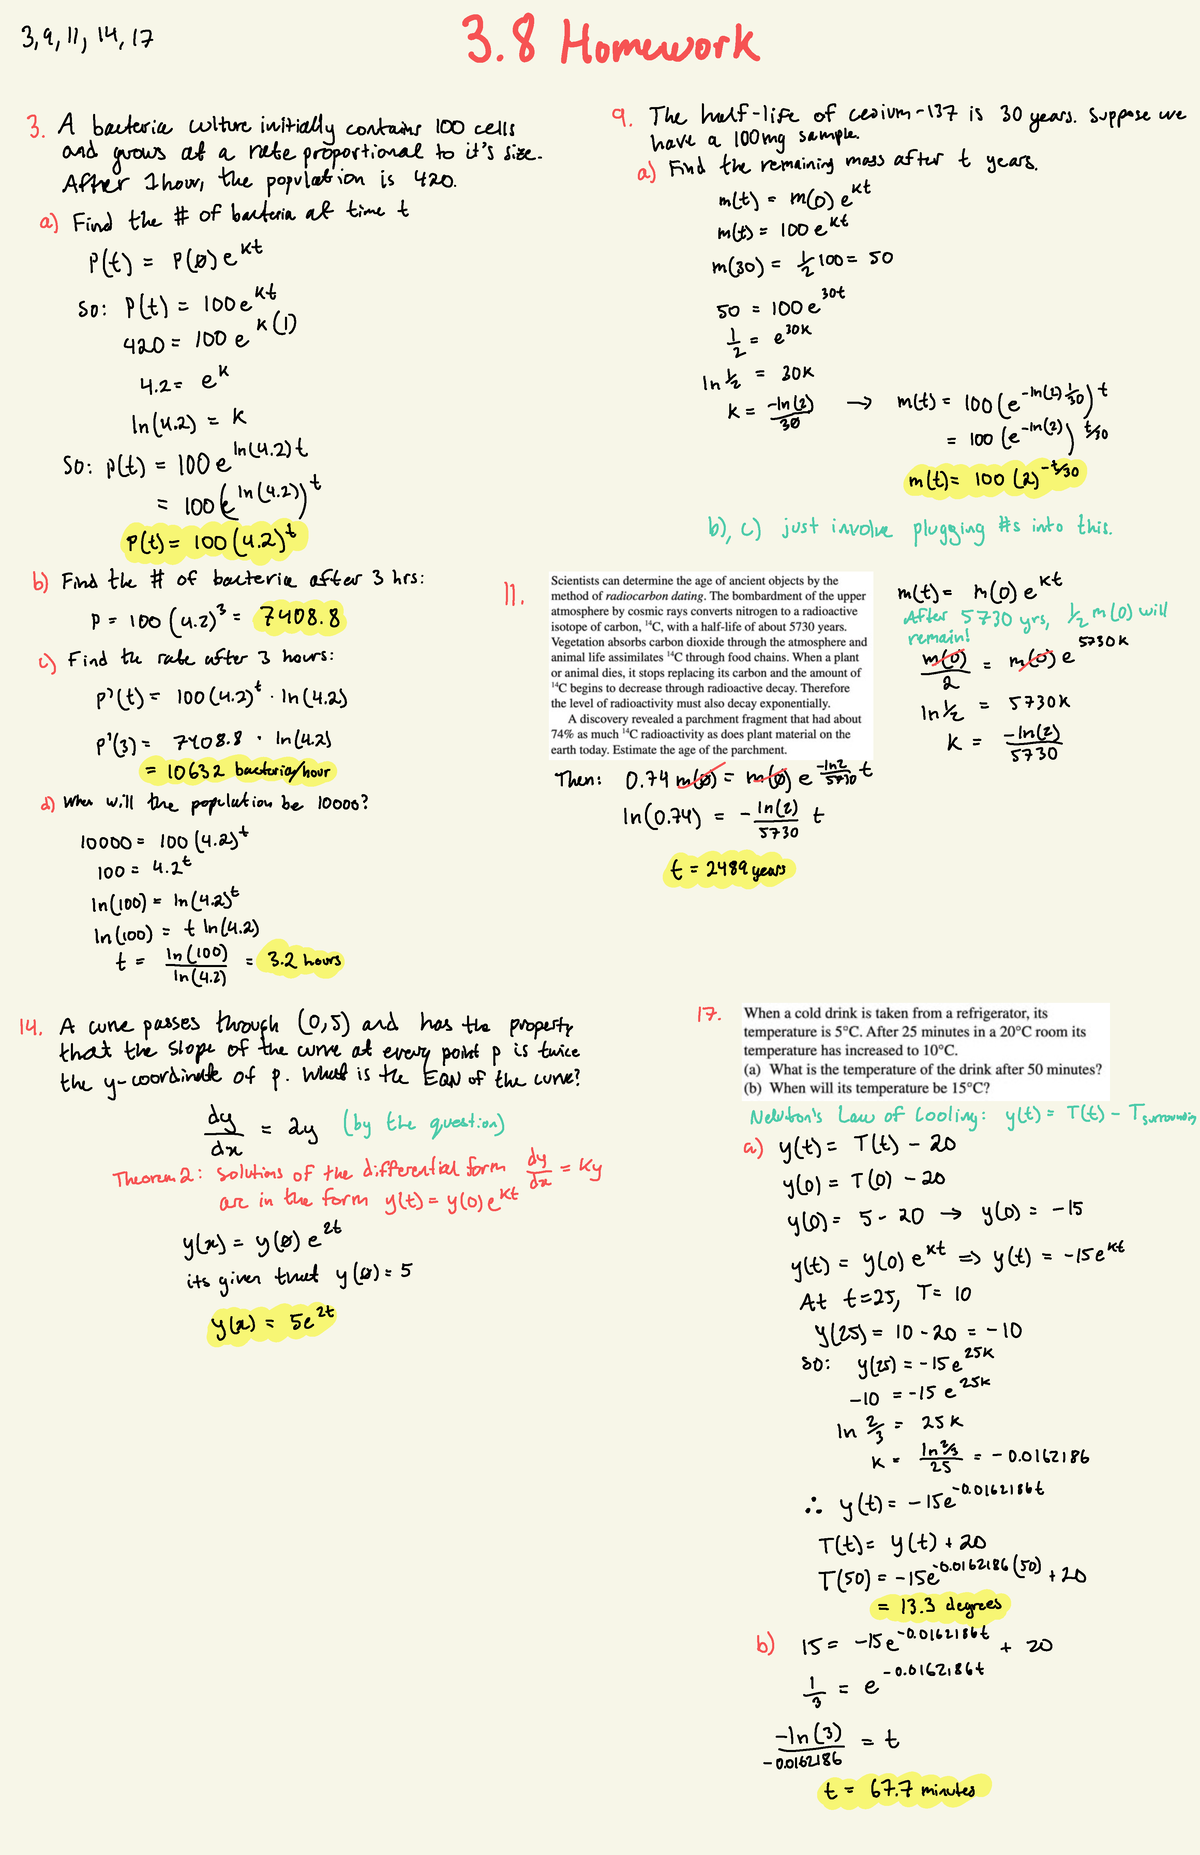 3, 9, 11, 14, 17
3.8 Homework
3. A bacteria culture initially contains 100 cells
and grows at a rate proportional to it's size.
After 1 hour, the population is 420.
a) Find the # of bacteria at time t
P(t) = P(0) e^kt
So: P(t) = 100 e^kt
420 = 100 e^k(1)
4.2 = e^k
ln(4.2) = k
So: P(t) = 100 e^ln(4.2)t
= 100 (e^ln(4.2))^t
P(t) = 100 (4.2)^t
b) Find the # of bacteria after 3 hrs:
P = 100 (4.2)^3 = 7408.8
c) Find the rate after 3 hours:
P'(t) = 100 (4.2)^t · ln(4.2)
P'(3) = 7408.8 · ln(4.2)
= 10632 bacteria/hour
d) When will the population be 10000?
10000 = 100 (4.2)^t
100 = 4.2^t
ln(100) = ln(4.2)^t
ln(100) = t ln(4.2)
t = ln(100)/ln(4.2) = 3.2 hours
9. The half-life of cesium-137 is 30 years. Suppose we
have a 100mg sample.
a) Find the remaining mass after t years.
m(t) = m(0) e^kt
m(t) = 100 e^kt
m(30) = 1/2 100 = 50
50 = 100 e^30t
1/2 = e^30k
ln 1/2 = 30k
k = -ln(2)/30 → m(t) = 100 (e^-ln(2) 1/30)^t
= 100 (e^-ln(2))^t/30
m(t) = 100 (2)^-t/30
b), c) just involve plugging #s into this.
11.
Scientists can determine the age of ancient objects by the
method of radiocarbon dating. The bombardment of the upper
atmosphere by cosmic rays converts nitrogen to a radioactive
isotope of carbon, ¹⁴C, with a half-life of about 5730 years.
Vegetation absorbs carbon dioxide through the atmosphere and
animal life assimilates ¹⁴C through food chains. When a plant
or animal dies, it stops replacing its carbon and the amount of
¹⁴C begins to decrease through radioactive decay. Therefore
the level of radioactivity must also decay exponentially.
A discovery revealed a parchment fragment that had about
74% as much ¹⁴C radioactivity as does plant material on the
earth today. Estimate the age of the parchment.
m(t) = m(0) e^kt
After 5730 yrs, 1/2 m(0) will
remain!
m(0)/2 = m(0) e^5730k
ln 1/2 = 5730k
k = -ln(2)/5730
Then: 0.74 m(0) = m(0) e^-ln2/5730 t
ln(0.74) = - ln(2)/5730 t
t = 2489 years
14. A curve passes through (0,5) and has the property
that the slope of the curve at every point p is twice
the y-coordinate of p. What is the EQN of the curve?
dy/dx = 2y (by the question)
Theorem 2: solutions of the differential form dy/dx = ky
are in the form y(t) = y(0) e^kt
y(x) = y(0) e^2t
its given that y(0) = 5
y(x) = 5e^2t
17.
When a cold drink is taken from a refrigerator, its
temperature is 5°C. After 25 minutes in a 20°C room its
temperature has increased to 10°C.
(a) What is the temperature of the drink after 50 minutes?
(b) When will its temperature be 15°C?
Newton's Law of Cooling: y(t) = T(t) - Tsurrounding
a) y(t) = T(t) - 20
y(0) = T(0) - 20
y(0) = 5 - 20 → y(0) = -15
y(t) = y(0) e^kt ⇒ y(t) = -15e^kt
At t=25, T= 10
y(25) = 10 - 20 = -10
so: y(25) = -15 e^25k
-10 = -15 e^25k
ln 2/3 = 25k
k = ln 2/3 / 25 = -0.0162186
∴ y(t) = -15e^-0.0162186t
T(t) = y(t) + 20
T(50) = -15e^-0.0162186(50) + 20
= 13.3 degrees
b) 15 = -15e^-0.0162186t + 20
1/3 = e^-0.0162186t
-ln(3)/-0.0162186 = t
t = 67.7 minutes